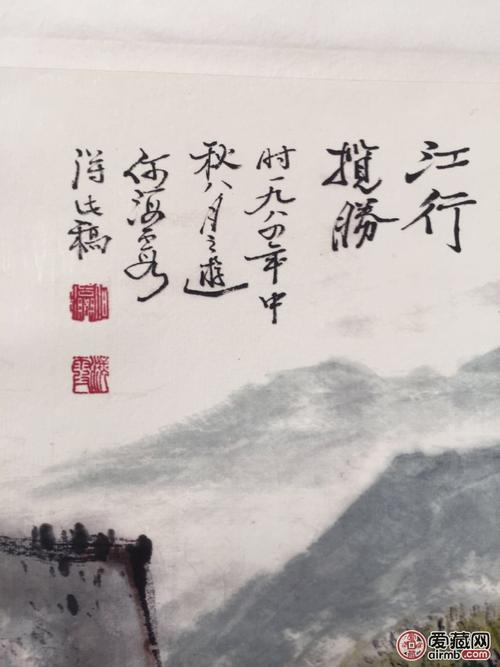 江行
攬勝
时一九八四年中
秋八月之遊
何海霞
得此稿
爱藏网
airmb.com